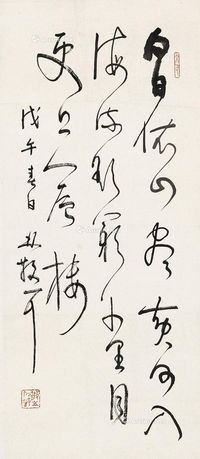 白日依山尽黄河入
海流欲穷千里目
更上一层楼
戊午春日林散耳